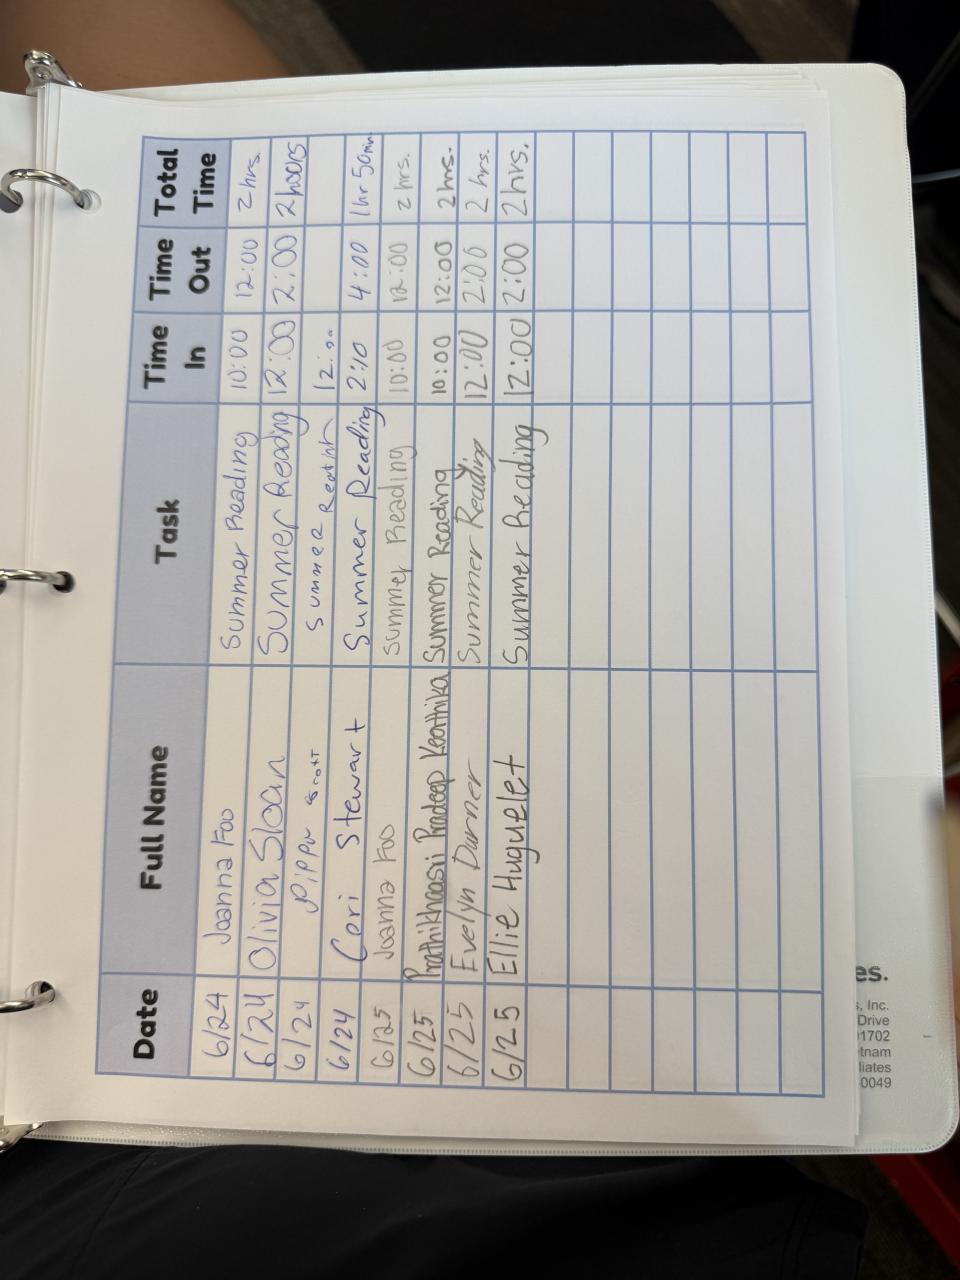 Date Full Name Task Time In Time Out Total Time
6/24 Joanna Foo Summer Reading 10:00 12:00 2 hrs.
6/24 Olivia Sloan Summer Reading 12:00 2:00 2 hours
6/24 Pippa Summer 12:00
6/24 Cori Stewart Summer Reading 2:10 4:00 1hr 50min
6/25 Joanna Foo Summer Reading 10:00 12:00 2 hrs.
6/25 Prathikhaasri Pradeep Keerthika Summer Reading 10:00 12:00 2hrs.
6/25 Evelyn Durner Summer Reading 12:00 2:00 2 hrs.
6/25 Ellie Huguelet Summer Reading 12:00 2:00 2hrs.
es.
, Inc.
Drive
1702
tnam
liates
0049